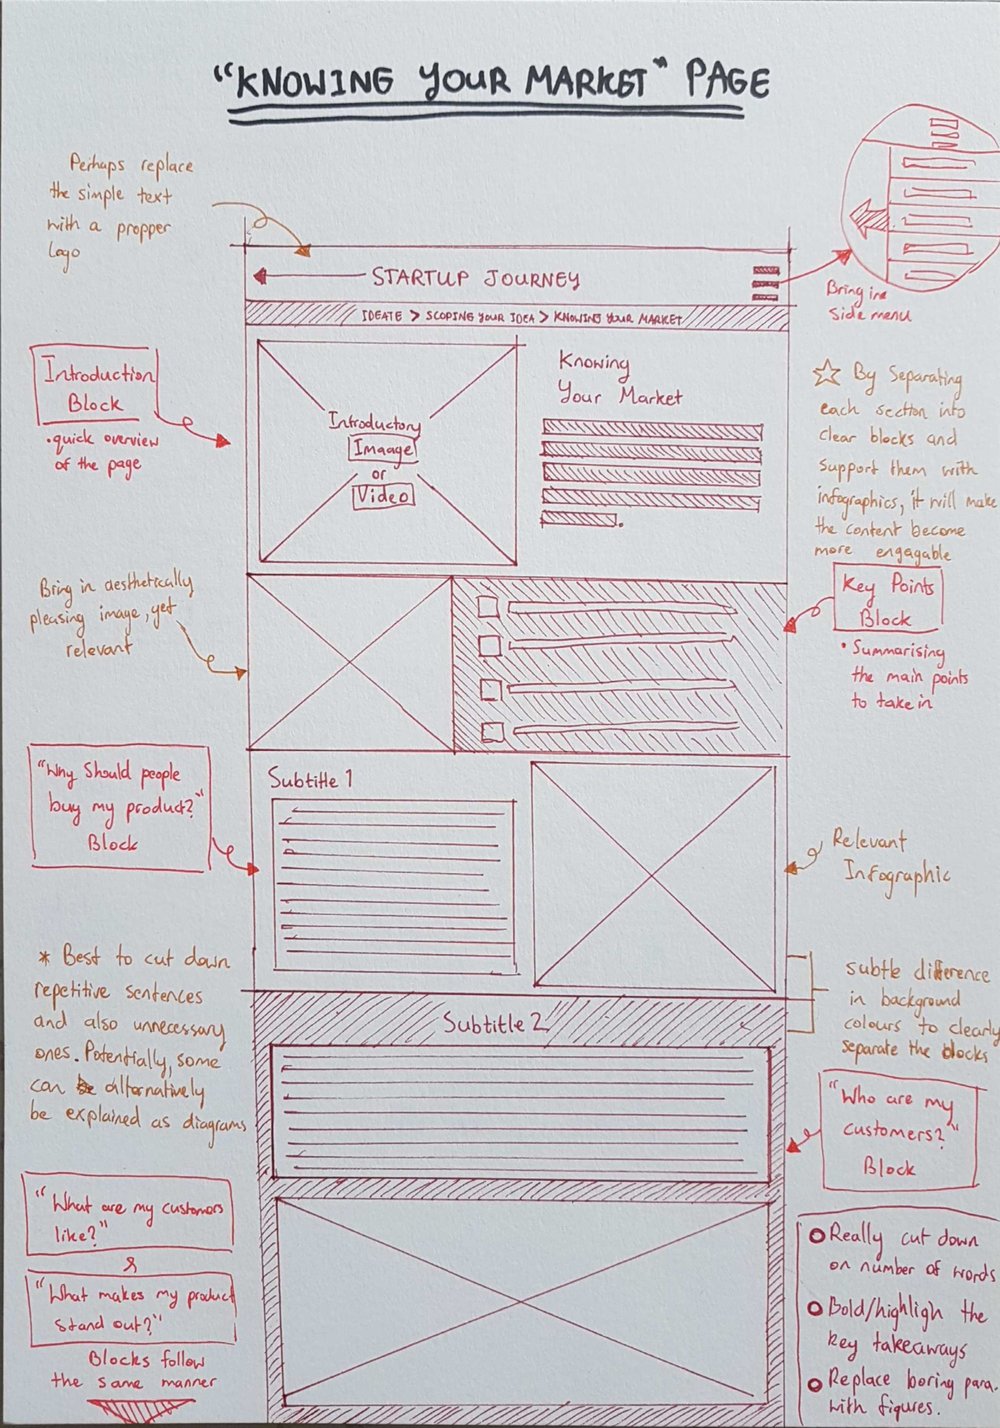 "KNOWING YOUR MARKET" PAGE
Perhaps replace
the simple text
with a propper
logo
STARTUP JOURNEY
IDEATE > SCOPING YOUR IDEA > KNOWING YOUR MARKET
Bring in a
Side menu
Introduction
Block
• quick overview
of the page
Introductory
Imaage
or
Video
Knowing
Your Market
☆ By Separating
each section into
clear blocks and
support them with
infographics, it will make
the content become
more engagable
Bring in aesthetically
pleasing image, yet
relevant
Key Points
Block
• Summarising
the main points
to take in
"Why Should people
buy my product?"
Block
Subtitle 1
Relevant
Infographic
* Best to cut down
repetitive sentences
and also unnecessary
ones. Potentially, some
can be alternatively
be explained as diagrams
subtle difference
in background
colours to clearly
separate the blocks
Subtitle 2
"Who are my
customers?"
Block
"What are my customers
like?"
&
"What makes my product
stand out?"
Blocks follow
the same manner
Really cut down
on number of words
Bold/highligh the
key takeaways
Replace boring para.
with figures.